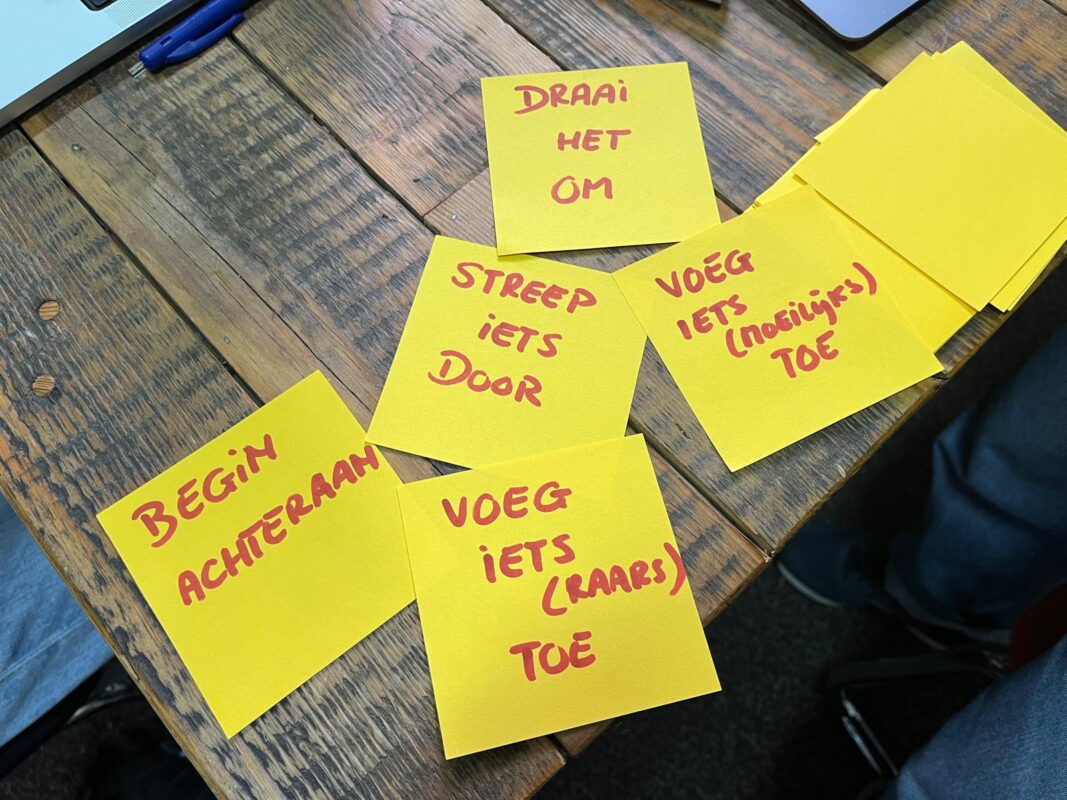 DRAAi
HET
OM
STREEP
iETS
DOOR
VOEG
IETS
(MOEILIJKS)
TOE
BEGiN
ACHTERAAN
VOEG
iETS
(RAARS)
TOE